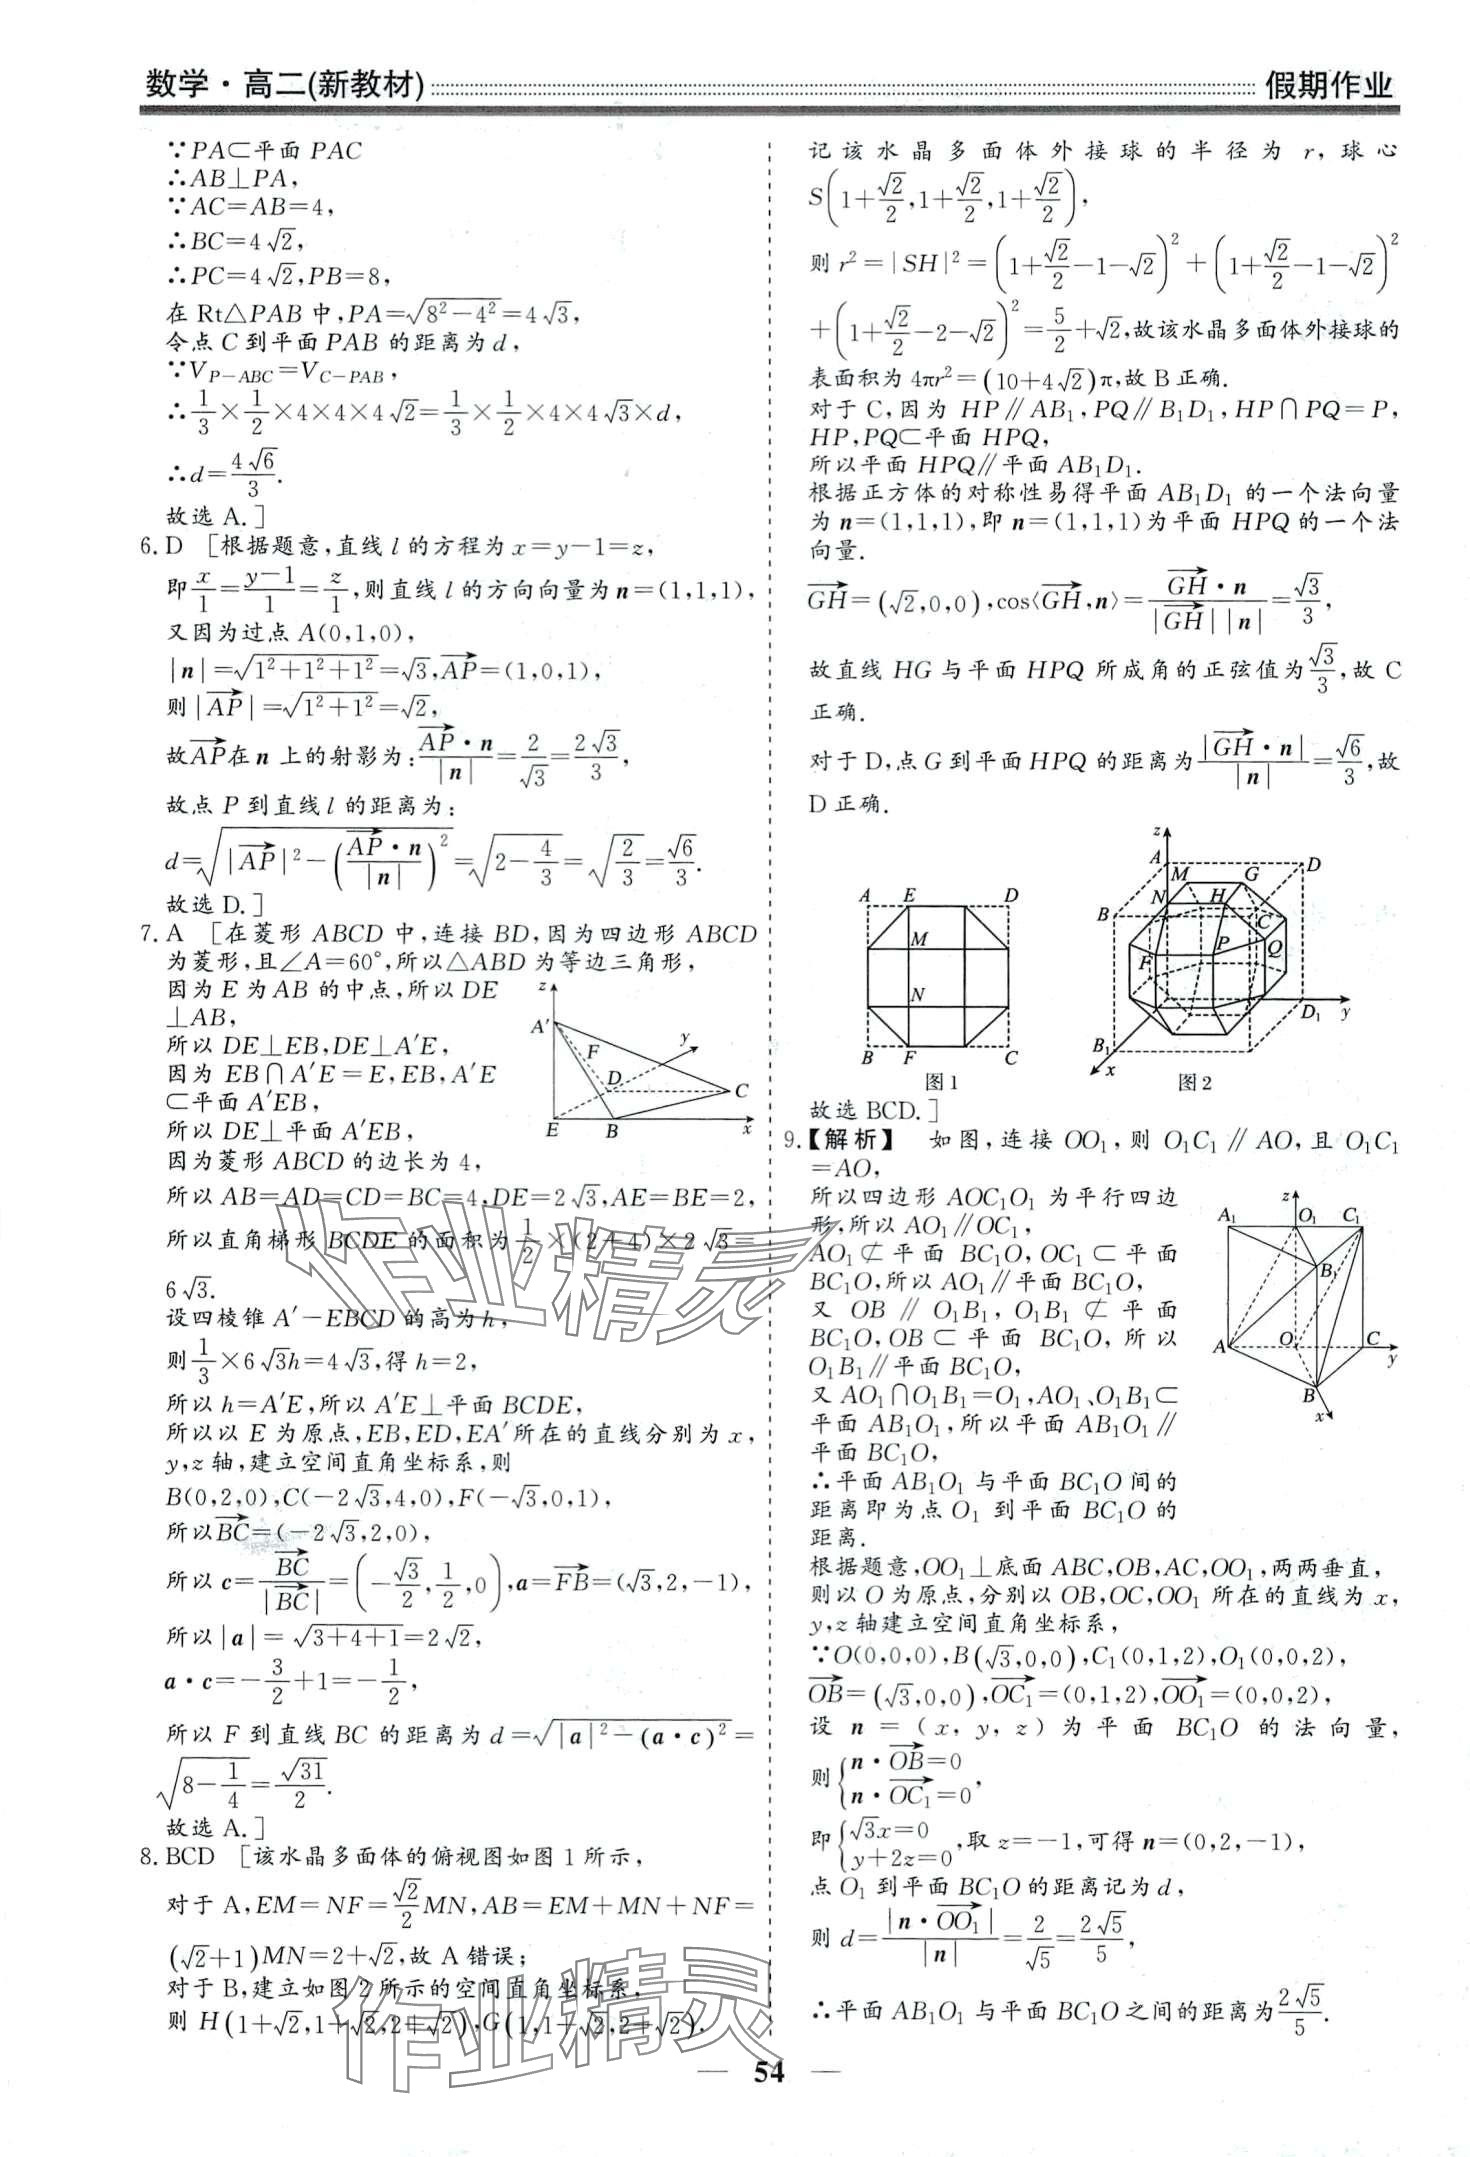 数学·高二(新教材)
假期作业
∵PA⊂平面 PAC
∴AB⊥PA,
∵AC=AB=4,
∴BC=4√2,
∴PC=4√2,PB=8,
在 Rt△PAB 中,PA=√(8²-4²)=4√3,
令点 C 到平面 PAB 的距离为 d,
∵V_{P-ABC}=V_{C-PAB},
∴1/3×1/2×4×4×4√2=1/3×1/2×4×4√3×d,
∴d=4√6/3.
故选 A.]
6.D [根据题意,直线 l 的方程为 x=y-1=z,
即x/1=(y-1)/1=z/1,则直线 l 的方向向量为 n=(1,1,1),
又因为过点 A(0,1,0),
|n|=√(1²+1²+1²)=√3,AP→=(1,0,1),
则|AP→|=√(1²+1²)=√2,
故AP→在 n 上的射影为:AP→·n/|n|=2/√3=2√3/3,
故点 P 到直线 l 的距离为:
d=√(|AP→|²-(AP→·n/|n|)²)=√(2-4/3)=√(2/3)=√6/3.
故选 D.]
7.A [在菱形 ABCD 中,连接 BD,因为四边形 ABCD
为菱形,且∠A=60°,所以△ABD 为等边三角形,
因为 E 为 AB 的中点,所以 DE
⊥AB,
所以 DE⊥EB,DE⊥A′E,
因为 EB∩A′E=E,EB,A′E
⊂平面 A′EB,
所以 DE⊥平面 A′EB,
因为菱形 ABCD 的边长为 4,
z A′ F y D C E B x
所以 AB=AD=CD=BC=4,DE=2√3,AE=BE=2,
所以直角梯形 BCDE 的面积为1/2×(2+4)×2√3=
6√3.
设四棱锥 A′-EBCD 的高为 h,
则1/3×6√3h=4√3,得 h=2,
所以 h=A′E,所以 A′E⊥平面 BCDE,
所以以 E 为原点,EB,ED,EA′所在的直线分别为 x,
y,z 轴,建立空间直角坐标系,则
B(0,2,0),C(-2√3,4,0),F(-√3,0,1),
所以BC→=(-2√3,2,0),
所以 c=BC→/|BC→|=(-√3/2,1/2,0),a=FB→=(√3,2,-1),
所以|a|=√(3+4+1)=2√2,
a·c=-3/2+1=-1/2,
所以 F 到直线 BC 的距离为 d=√(|a|²-(a·c)²)=
√(8-1/4)=√31/2.
故选 A.]
8.BCD [该水晶多面体的俯视图如图 1 所示,
对于 A,EM=NF=√2/2MN,AB=EM+MN+NF=
(√2+1)MN=2+√2,故 A 错误;
对于 B,建立如图 2 所示的空间直角坐标系,
则 H(1+√2,1+√2,2+√2),G(1,1+√2,2+√2),
记该水晶多面体外接球的半径为 r,球心
S(1+√2/2,1+√2/2,1+√2/2),
则 r²=|SH|²=(1+√2/2-1-√2)²+(1+√2/2-1-√2)²
+(1+√2/2-2-√2)²=5/2+√2,故该水晶多面体外接球的
表面积为 4πr²=(10+4√2)π,故 B 正确.
对于 C,因为 HP∥AB₁,PQ∥B₁D₁,HP∩PQ=P,
HP,PQ⊂平面 HPQ,
所以平面 HPQ∥平面 AB₁D₁.
根据正方体的对称性易得平面 AB₁D₁ 的一个法向量
为 n=(1,1,1),即 n=(1,1,1)为平面 HPQ 的一个法
向量.
GH→=(√2,0,0),cos⟨GH→,n⟩=GH→·n/|GH→||n|=√3/3,
故直线 HG 与平面 HPQ 所成角的正弦值为√3/3,故 C
正确.
对于 D,点 G 到平面 HPQ 的距离为|GH→·n|/|n|=√6/3,故
D 正确.
A E D M N B F C
图 1
z A M G D N H B C P Q F D₁ y B₁ x
图 2
故选 BCD.]
9.【解析】 如图,连接 OO₁,则 O₁C₁∥AO,且 O₁C₁
=AO,
所以四边形 AOC₁O₁ 为平行四边
形,所以 AO₁∥OC₁,
AO₁⊄平面 BC₁O,OC₁⊂平面
BC₁O,所以 AO₁∥平面 BC₁O,
又 OB∥O₁B₁,O₁B₁⊄平面
BC₁O,OB⊂平面 BC₁O,所以
O₁B₁∥平面 BC₁O,
又 AO₁∩O₁B₁=O₁,AO₁、O₁B₁⊂
平面 AB₁O₁,所以平面 AB₁O₁∥
平面 BC₁O,
∴平面 AB₁O₁ 与平面 BC₁O 间的
距离即为点 O₁ 到平面 BC₁O 的
距离.
z A₁ O₁ C₁ B₁ A O C y B x
根据题意,OO₁⊥底面 ABC,OB,AC,OO₁,两两垂直,
则以 O 为原点,分别以 OB,OC,OO₁ 所在的直线为 x,
y,z 轴建立空间直角坐标系,
∵O(0,0,0),B(√3,0,0),C₁(0,1,2),O₁(0,0,2),
OB→=(√3,0,0),OC₁→=(0,1,2),OO₁→=(0,0,2),
设 n=(x,y,z)为平面 BC₁O 的法向量,
则{n·OB→=0
n·OC₁→=0,
即{√3x=0
y+2z=0,取 z=-1,可得 n=(0,2,-1),
点 O₁ 到平面 BC₁O 的距离记为 d,
则 d=|n·OO₁→|/|n|=2/√5=2√5/5,
∴平面 AB₁O₁ 与平面 BC₁O 之间的距离为2√5/5.
— 54 —
作业精灵
作业精灵